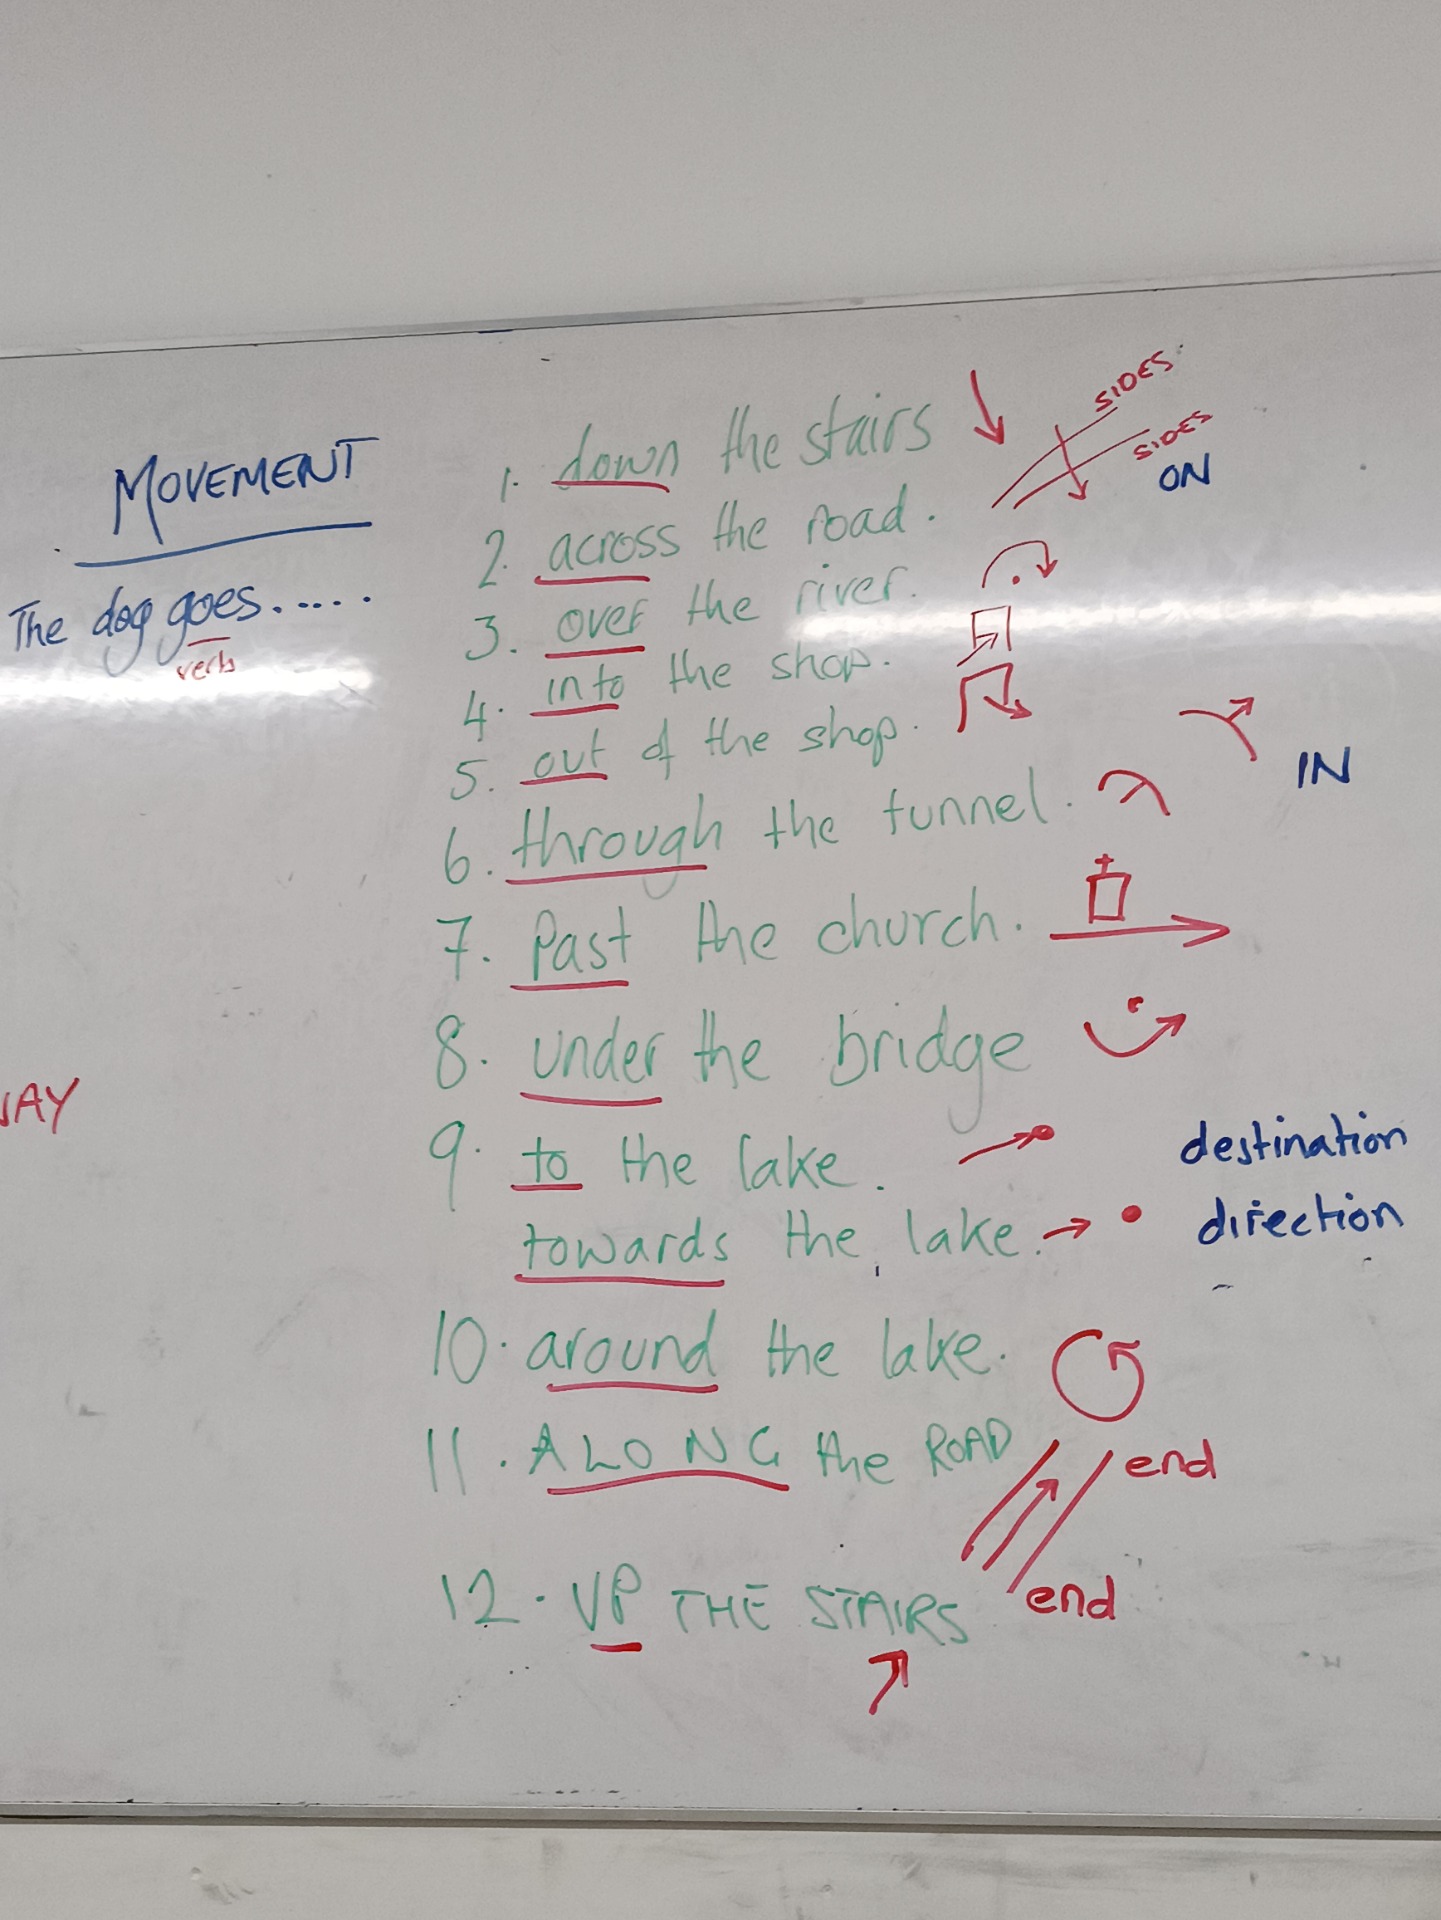 MOVEMENT
The dog goes......
verb
1. down the stairs
SIDES
SIDES
ON
2. across the road.
3. over the river.
4. into the shop.
5. out of the shop.
IN
6. through the tunnel.
7. Past the church.
8. under the bridge
9. to the lake.
destination
towards the lake.
direction
10. around the lake.
11. ALONG the ROAD
end
end
12. UP THE STAIRS